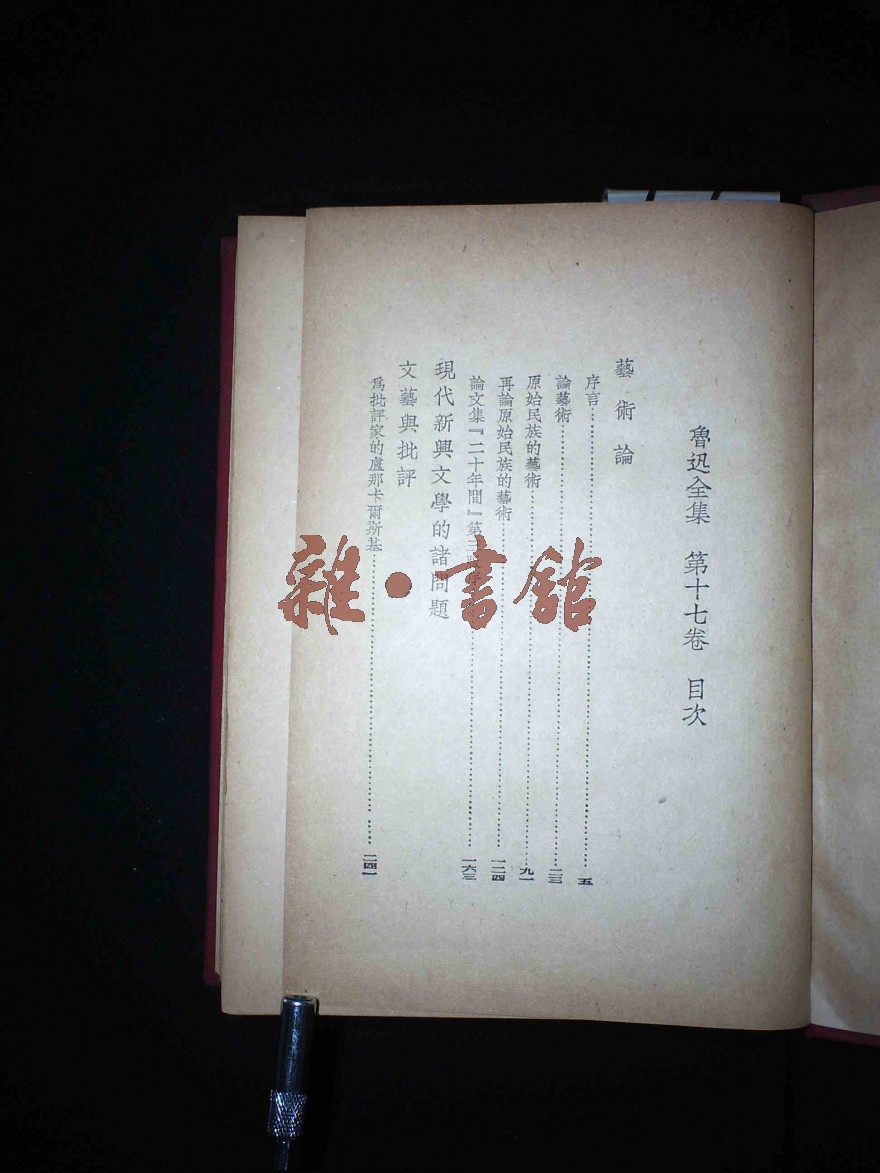 魯迅全集 第十七卷 目次
藝術論
序言……五
論藝術……二三
原始民族的藝術……九一
再論原始民族的藝術……一二四
論文集『二十年間』第三版……一六三
現代新興文學的諸問題
文藝與批評
爲批評家的盧那卡爾斯基……二四一
雜·書館